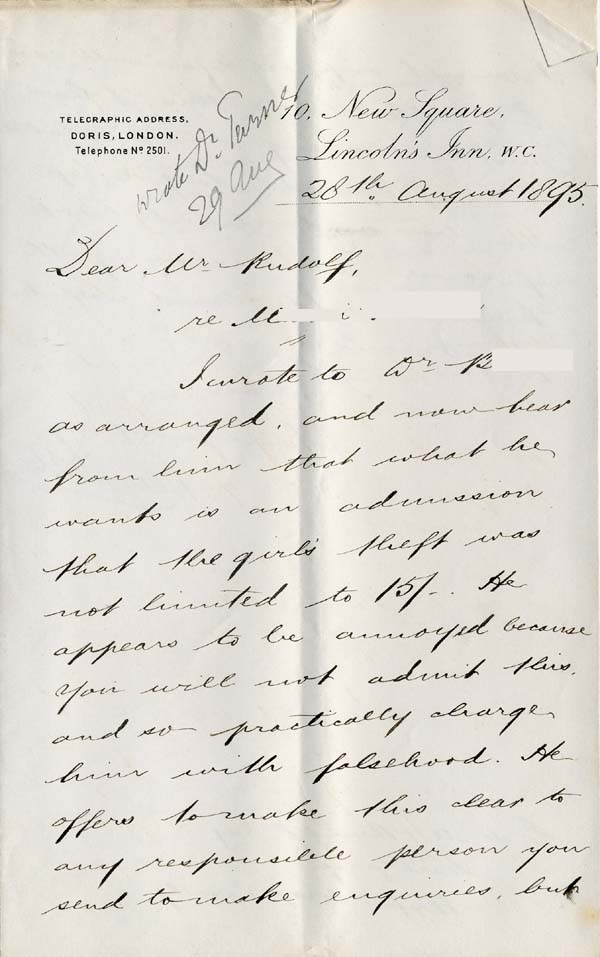 TELEGRAPHIC ADDRESS,
DORIS, LONDON.
Telephone Nº 2501.
wrote Dr Turner
29 Aug
10, New Square,
Lincoln's Inn, W.C.
28th August 1895.
Dear Mr Rudolf,
re M
I wrote to Dr B
as arranged, and now hear
from him that what he
wants is an admission
that the girl's theft was
not limited to 15/-. He
appears to be annoyed because
you will not admit this,
and so practically charge
him with falsehood. He
offers to make this clear to
any responsible person you
send to make enquiries, but